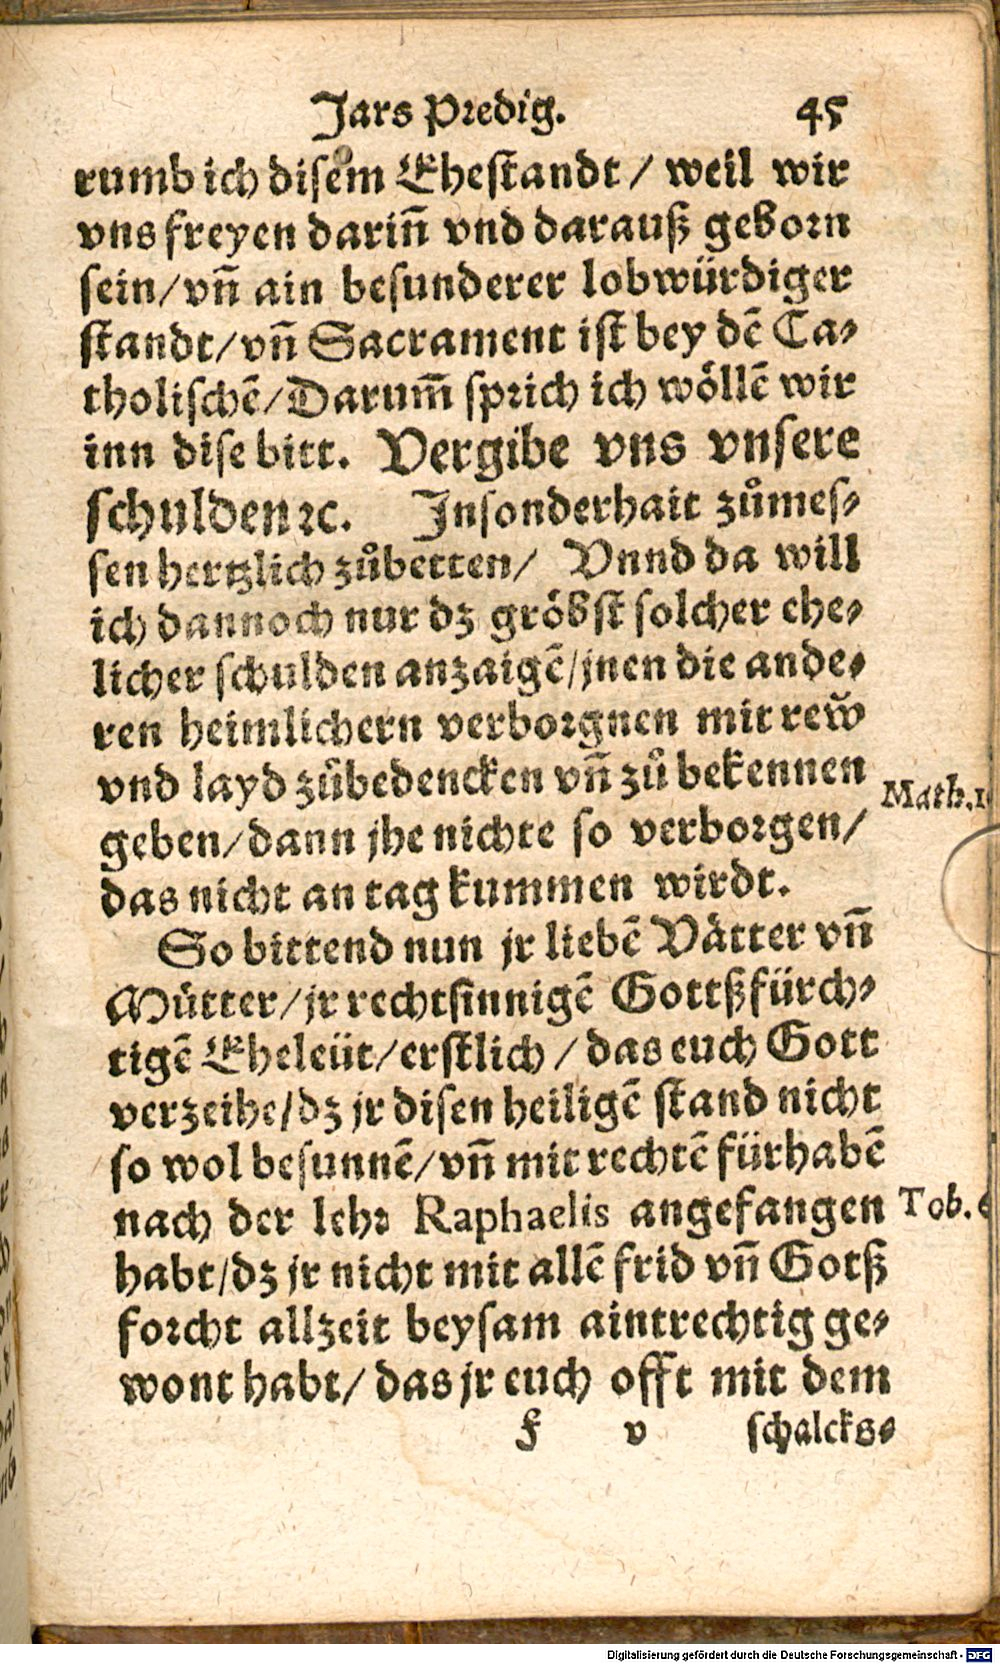 Jars Predig. 45
rumb ich disem Ehestandt / weil wir
vns freyen dariñ vnd darauß geborn
sein/vñ ain besunderer lobwürdiger
standt/vñ Sacrament ist bey dẽ Ca-
tholischẽ/Darum̃ sprich ich wöllẽ wir
inn dise bitt. Vergibe vns vnsere
schulden ꝛc. Insonderhait zůmes-
sen hertzlich zůbetten/ Vnnd da will
ich dannoch nur dz gröbst solcher ehe-
licher schulden anzaigẽ/jnen die ande-
ren heimlichern verborgnen mit rew̆
vnd layd zůbedencken vñ zů bekennen
geben/dann jhe nichte so verborgen/
Math.1
das nicht an tag kummen wirdt.
So bittend nun jr liebẽ Vätter vñ
Mütter/jr rechtsinnigẽ Gottßfürch-
tigẽ Eheleüt/erstlich/das euch Gott
verzeihe/dz jr disen heiligẽ stand nicht
so wol besunnẽ/vñ mit rechtẽ fürhabẽ
nach der lehr Raphaelis angefangen
Tob.
habt/dz jr nicht mit allẽ frid vñ Gotß
forcht allzeit beysam aintrechtig ge-
wont habt/das jr euch offt mit dem
f v schalcks-
Digitalisierung gefördert durch die Deutsche Forschungsgemeinschaft - DFG